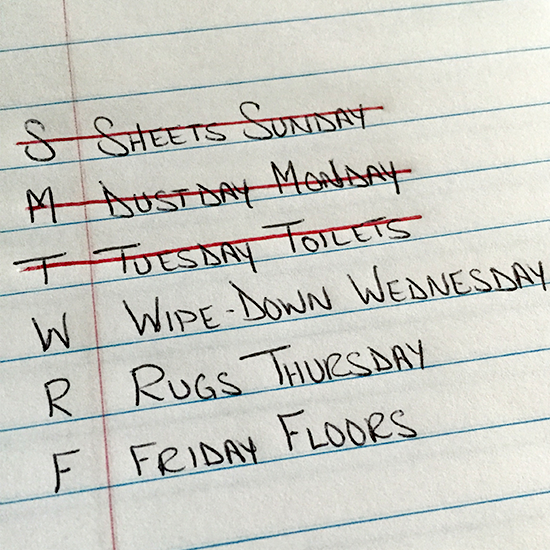 S SHEETS SUNDAY
M DUSTDAY MONDAY
T TUESDAY TOILETS
W WIPE-DOWN WEDNESDAY
R RUGS THURSDAY
F FRIDAY FLOORS